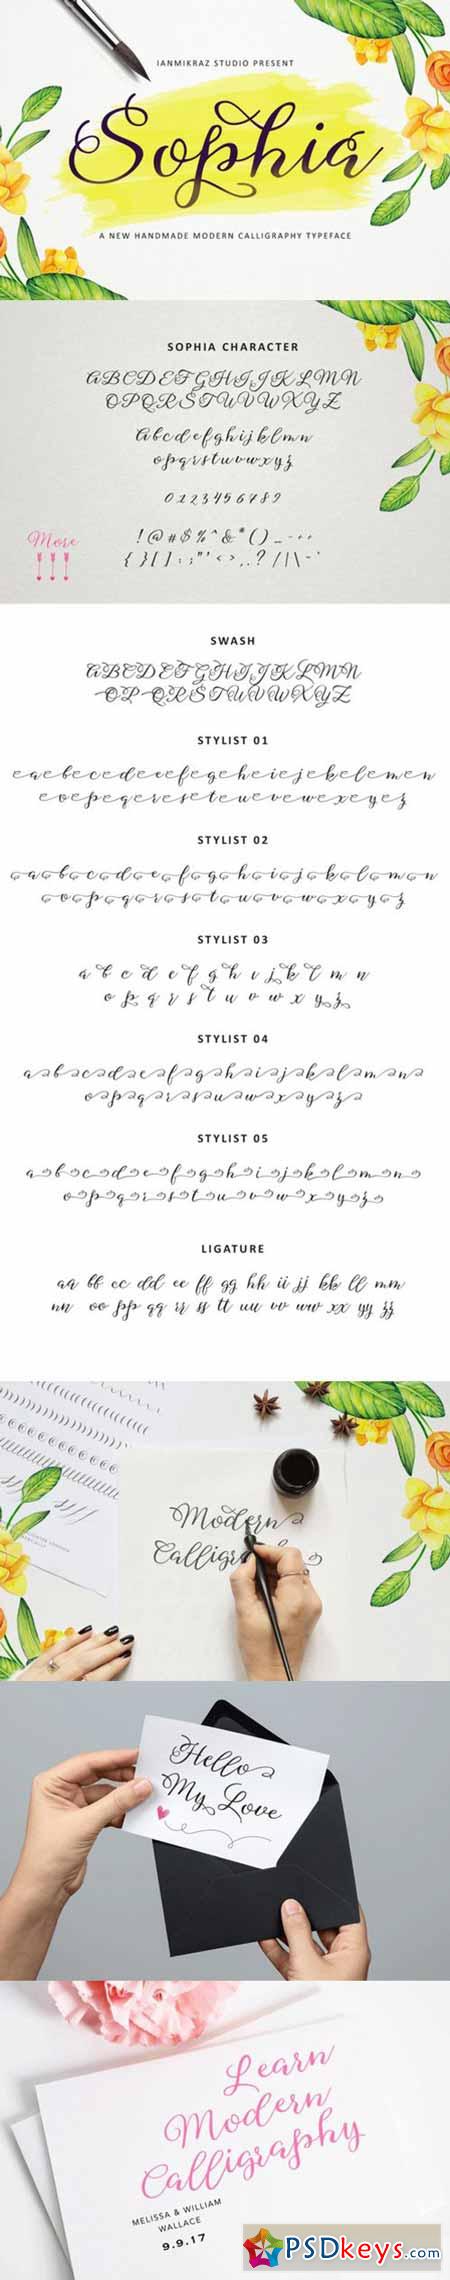 IANMIKRAZ STUDIO PRESENT
Sophia
A NEW HANDMADE MODERN CALLIGRAPHY TYPEFACE
SOPHIA CHARACTER
ABCDEFGHIJKLMN
OPQRSTUVWXYZ
Abcdefghijklmn
opqrstuvwxyz
0123456789
!@#$%^&*()_-++
{}[]:;"'<>,.?/|\~`
More
SWASH
ABCDEFGHIJKLMN
OPQRSTUVWXYZ
STYLIST 01
a b c d e f g h i j k l m n
o p q r s t u v w x y z
STYLIST 02
a b c d e f g h i j k l m n
o p q r s t u v w x y z
STYLIST 03
a b c d e f g h i j k l m n
o p q r s t u v w x y z
STYLIST 04
a b c d e f g h i j k l m n
o p q r s t u v w x y z
STYLIST 05
a b c d e f g h i j k l m n
o p q r s t u v w x y z
LIGATURE
aa bb cc dd ee ff gg hh ii jj kk ll mm
nn oo pp qq rr ss tt uu vv ww xx yy zz
Modern
Hello
My Love
Learn
Modern
Calligraphy
MELISSA & WILLIAM
WALLACE
9.9.17
PSDkeys.com